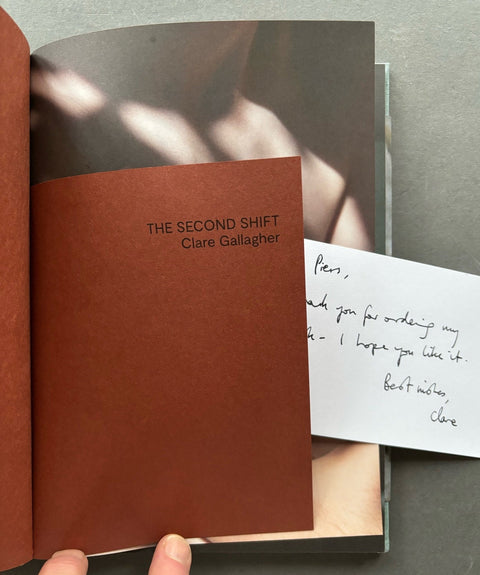 THE SECOND SHIFT
Clare Gallagher
Piers,
you for ordering my
- I hope you like it.
Best wishes,
Clare